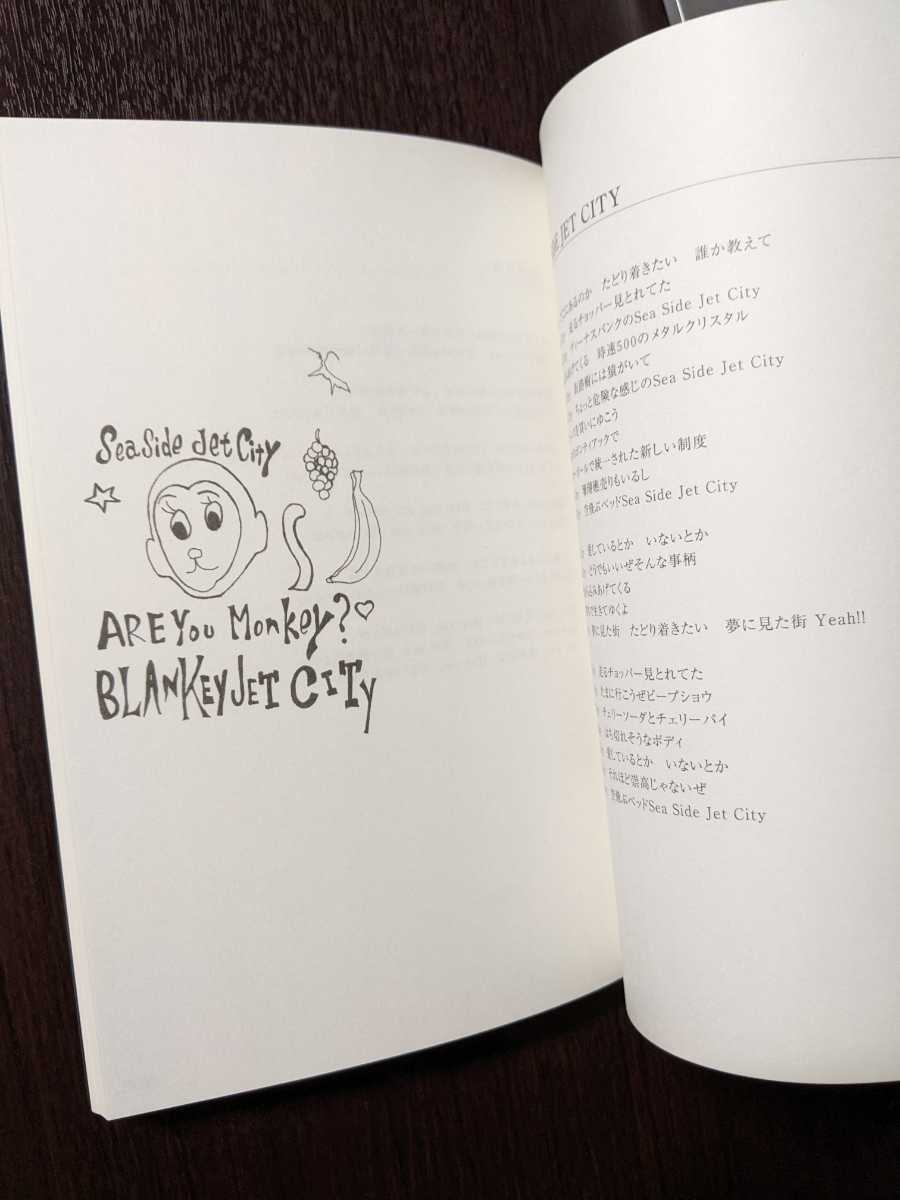 Sea Side Jet City
ARE You Monkey?♡
BLANKEY JET CITY
JET CITY
あるのか　たどり着きたい　誰か教えて
走るチョッパー見とれてた
ヴィーナスバンクのSea Side Jet City
てくる　時速500のメタルクリスタル
には猿がいて
ちょっと危険な感じのSea Side Jet City
買いにゆこう
ポンティアックで
ルールで統一された新しい制度
売りもいるし
空飛ぶベッドSea Side Jet City
愛しているとか　いないとか
どうでもいいぜそんな事柄
込みあげてくる
で生きてゆくよ
夢に見た街　たどり着きたい　夢に見た街 Yeah!!
走るチョッパー見とれてた
たまに行こうぜピープショウ
チェリーソーダとチェリーパイ
はち切れそうなボディ
愛しているとか　いないとか
それほど崇高じゃないぜ
空飛ぶベッドSea Side Jet City